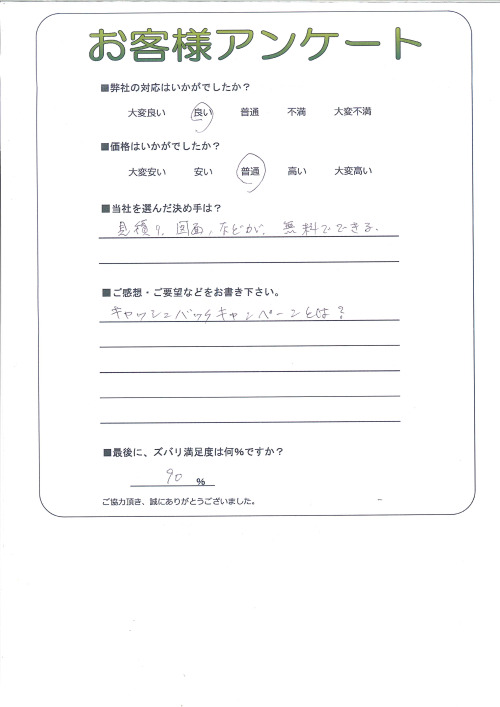 お客様アンケート
■弊社の対応はいかがでしたか？
大変良い 良い 普通 不満 大変不満
■価格はいかがでしたか？
大変安い 安い 普通 高い 大変高い
■当社を選んだ決め手は？
見積り、図面、などが、無料でできる。
■ご感想・ご要望などをお書き下さい。
キャッシュバックキャンペーンとは？
■最後に、ズバリ満足度は何%ですか？
90 %
ご協力頂き、誠にありがとうございました。